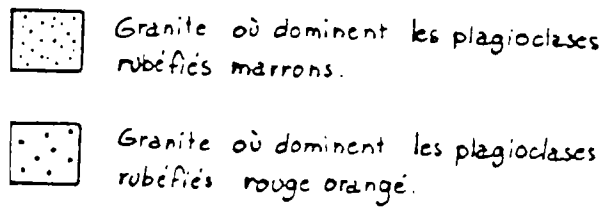 Granite où dominent les plagioclases
rubéfiés marrons.
Granite où dominent les plagioclases
rubéfiés rouge orangé.